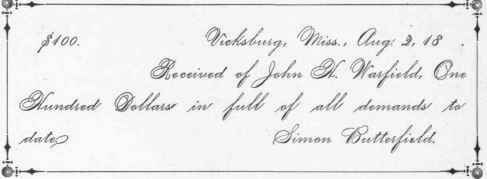 $100. Vicksburg, Miss., Aug. 2, 18 .
Received of John H. Warfield, One
Hundred Dollars in full of all demands to
date, Simon Butterfield.